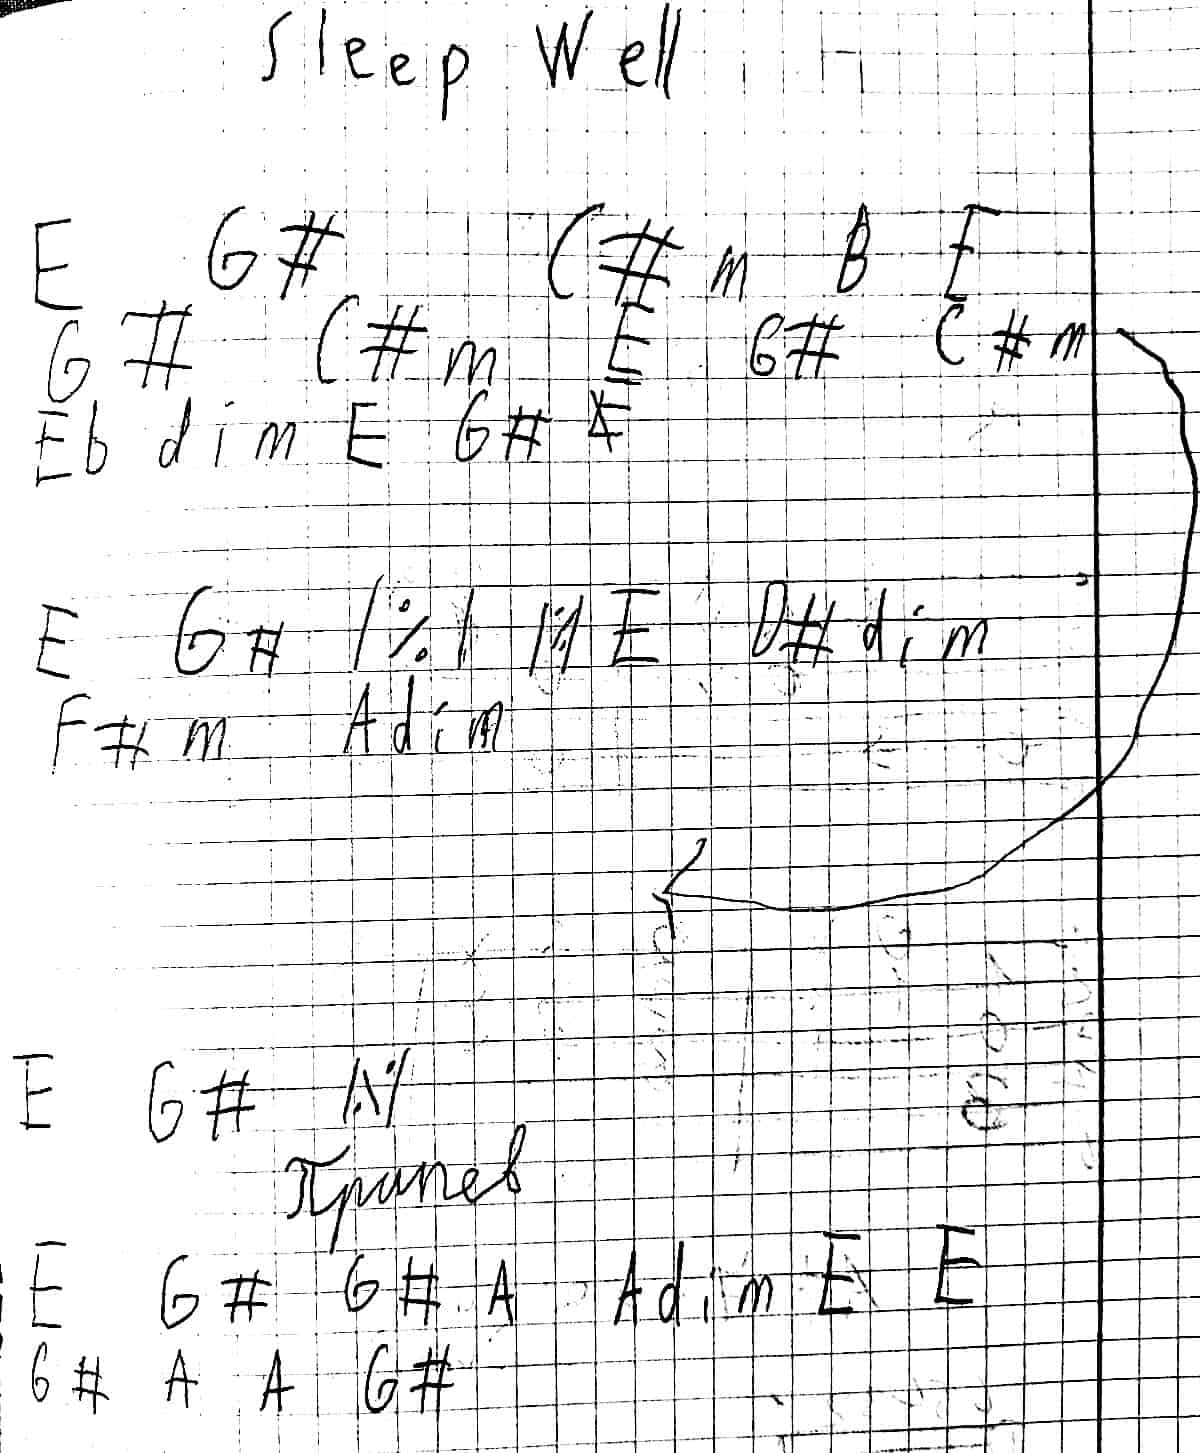 Sleep Well
E G# C#m B E
G# C#m E G# C#m
Eb dim E G#
E G# |%| |%| E D#dim
F#m Adim
E G# |%|
Припев
E G# G# A Adim E E
G# A A G#